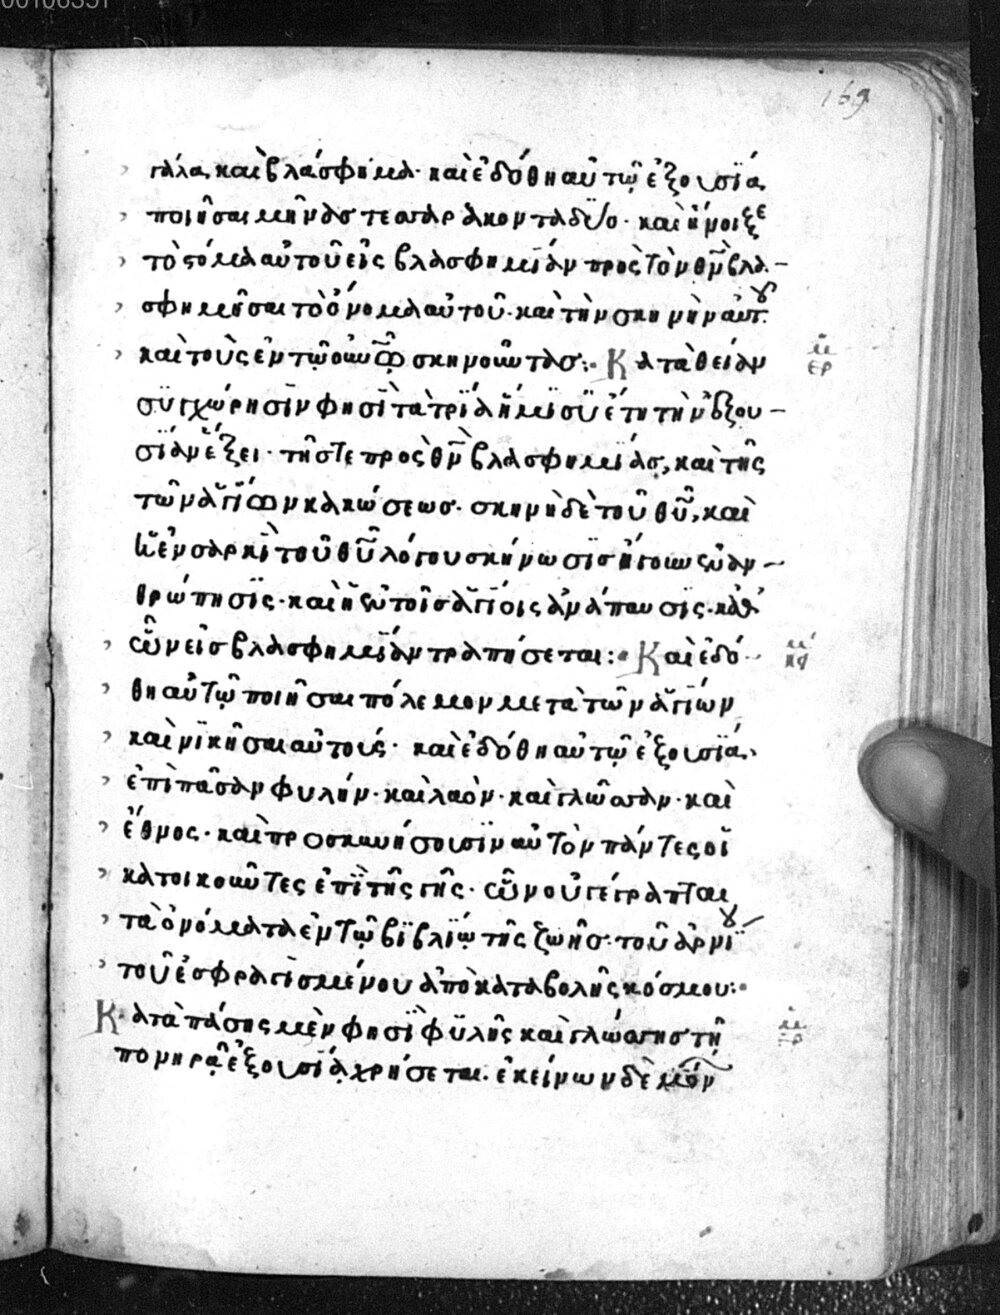 169
γάλα καὶ βλάσφημα· καὶ ἐδόθη αὐτῷ ἐξουσία
ποιῆσαι μῆνας τεσσαράκοντα δύο· καὶ ἤνοιξε
τὸ στόμα αὐτοῦ εἰς βλασφημίαν πρὸς τὸν θν̅ βλα-
σφημῆσαι τὸ ὄνομα αὐτοῦ· καὶ τὴν σκηνὴν αὐτου
καὶ τοὺς ἐν τῷ οὐνῶ σκηνοῦντας:· Κατὰ θείαν
συγχώρησιν φησὶ τὰ τρία ἥμισυ ἔτη τὴν ἐξου-
σίαν ἕξει· τῆς τε πρὸς θν̅ βλασφημίας, καὶ τῆς
τῶν ἁγίων κακώσεως· σκηνὴ δὲ τοῦ θυ̅, καὶ
ἡ ἐν σαρκὶ τοῦ θυ̅ λόγου σκήνωσις ἤγουν ἐναν-
θρώπησις· καὶ ἡ ἐν τοῖς ἁγίοις ἀνάπαυσις· καθ
ὧν εἰς βλασφημίαν τραπήσεται:· Καὶ ἐδό-
θη αὐτῷ ποιῆσαι πόλεμον μετὰ τῶν ἁγίων
καὶ νικῆσαι αὐτούς· καὶ ἐδόθη αὐτῷ ἐξουσία·
ἐπὶ πᾶσαν φυλήν· καὶ λαὸν· καὶ γλῶσσαν· καὶ
ἔθνος· καὶ προσκυνήσουσιν αὐτὸν πάντες οἱ
κατοικοῦντες ἐπὶ τῆς γῆς· ὧν οὐ γέγραπται
τὰ ὀνόματα ἐν τῷ βιβλίῳ τῆς ζωῆς· τοῦ ἀρνίου
τοῦ ἐσφραγισμένου ἀπὸ καταβολῆς κόσμου:·
Κατὰ πάσης μὲν φησὶ φυλῆς καὶ γλώσσης τῇ
πονηρᾷ ἐξουσίᾳ χρήσεται· ἐκείνων δὲ μόν